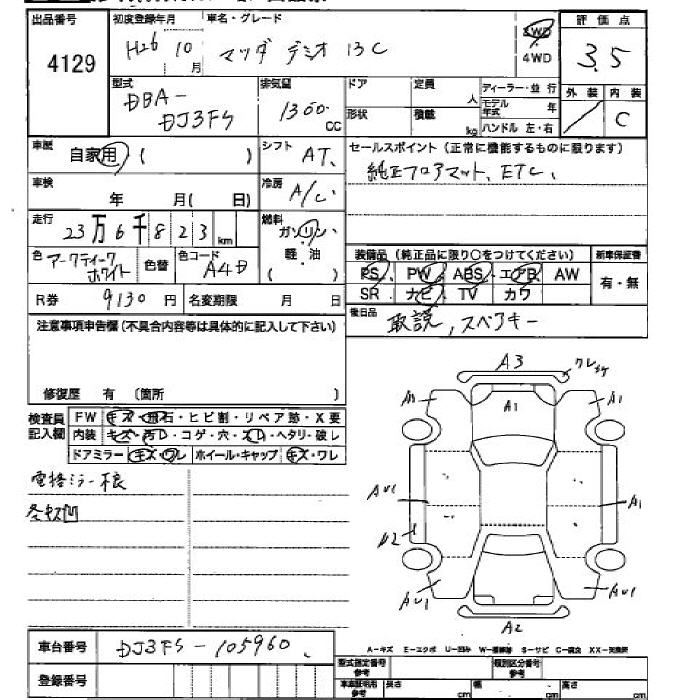 出品番号 初度登録年月 車名・グレード 評価点
4129 H26年 10月 マツダ デミオ 13C 2WD 4WD 3.5
型式 DBA-DJ3FS 排気量 1300 CC ドア 定員 人 ディーラー・並行
形状 積載 kg モデル年式 年 外装 内装
ハンドル 左・右 C
車歴 自家用 ( ) シフト AT、 セールスポイント(正常に機能するものに限ります)
車検 年 月(日) 冷房 A/C、 純正フロアマット、ETC、
走行 23万6千823km 燃料 ガソリン
軽・油
( )
色 アークティークホワイト 色替 色コード A4D 装備品(純正品に限り○をつけてください) 新車保証書
PS PW ABS エアB AW 有・無
R券 9130円 名変期限 月 日 SR ナビ TV カワ
注意事項申告欄(不具合内容等は具体的に記入して下さい) 後日品 取説,スペアキー
修復歴 有 (箇所 )
検査員記入欄 FW キズ・飛石・ヒビ割・リペア跡・X要
内装 キズ・汚レ・コゲ・穴・スレ・ヘタリ・破レ
ドアミラー キズ・ワレ ホイール・キャップ キズ・ワレ
電格ミラー不良
A3
A1
A1
A1
AU1
A1
U2
AU1
AU1
A2
車台番号 DJ3FS-105960、
A-キズ E-エクボ U-凹み
登録番号 型式指定番号 参考 類別区分番号 参考
車庫証明用 参考 長さ cm 幅 cm 高さ cm